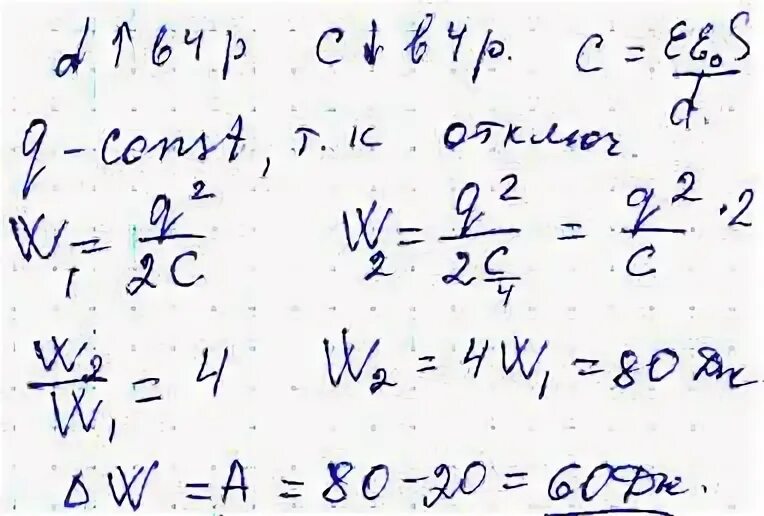 d ↑ в 4 р C ↓ в 4 р. C = εε₀S/d
q - const, т.к отключ.
W₁ = q²/2C W₂ = q²/(2 C/4) = q²/C · 2
W₂/W₁ = 4 W₂ = 4W₁ = 80 Дж
ΔW = A = 80 - 20 = 60 Дж.